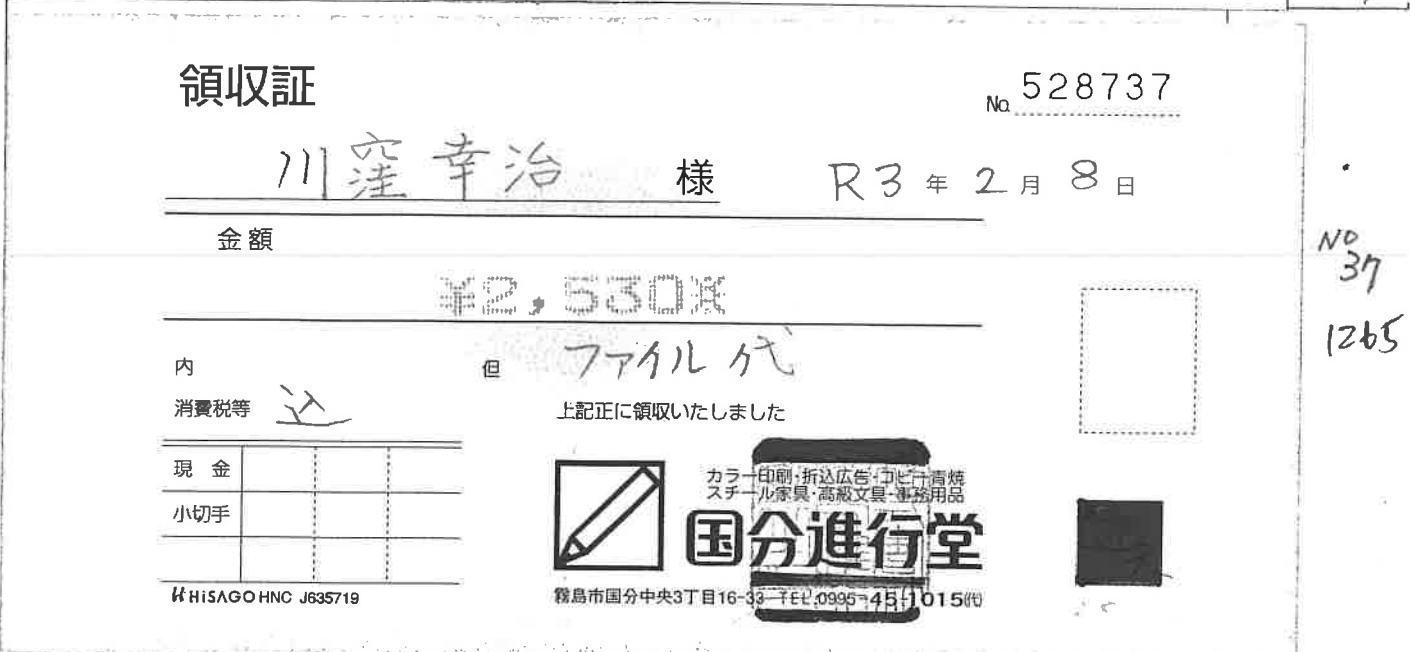 領収証
No. 528737
川窪幸治 様
R3年2月8日
金額
¥2,530※
内
消費税等 込
但 ファイル代
上記正に領収いたしました
現金
小切手
HiSAGO HNC J635719
カラー印刷・折込広告・コピー・青焼
スチール家具・高級文具・事務用品
国分進行堂
霧島市国分中央3丁目16-33 TEL.0995-45-1015㈹
No
37
1265